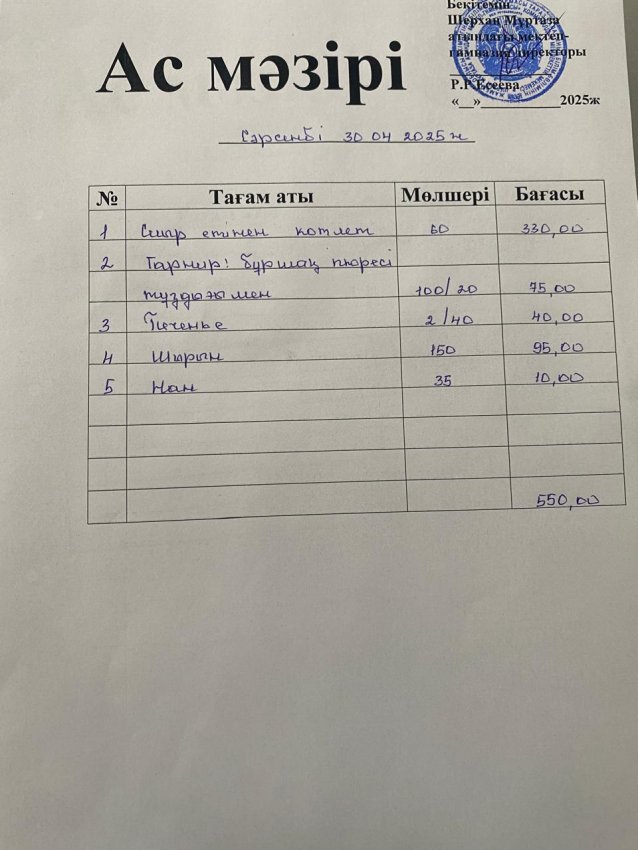 Бекітемін
Шерхан Мұртаза
атындағы мектеп-
гимназия директоры
Р.Р.Есеева
«__»____________2025ж
Ас мәзірі
Сәрсенбі 30 04 2025 ж
№ Тағам аты Мөлшері Бағасы
1 Сиыр етінен котлет 60 330,00
2 Гарнир: бұршақ пюресі
тұздығымен 100/20 75,00
3 Печенье 2/40 40,00
4 Шырын 150 95,00
5 Нан 35 10,00
550,00